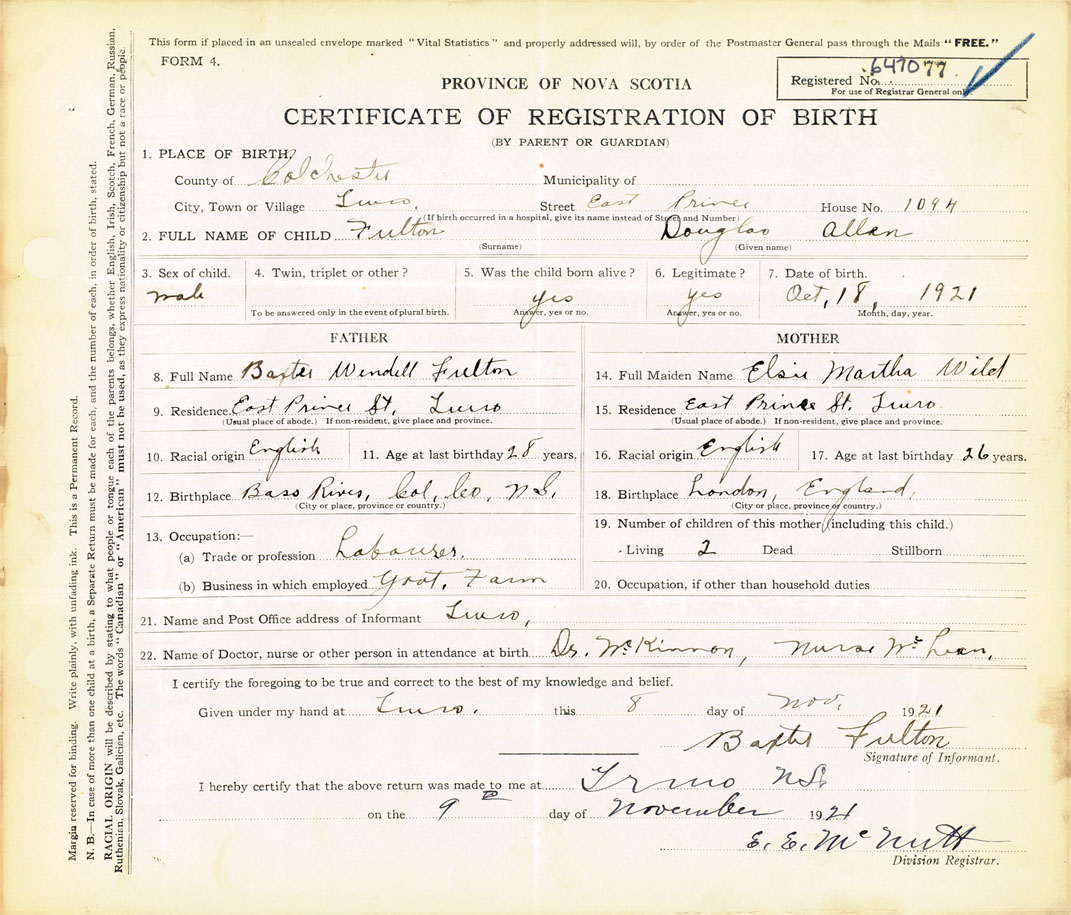 This form if placed in an unsealed envelope marked "Vital Statistics" and properly addressed will, by order of the Postmaster General pass through the Mails "FREE."
FORM 4.
Registered No. 647077
For use of Registrar General only
PROVINCE OF NOVA SCOTIA
CERTIFICATE OF REGISTRATION OF BIRTH
(BY PARENT OR GUARDIAN)
1. PLACE OF BIRTH,
County of Colchester Municipality of
City, Town or Village Truro, Street East Prince House No. 1094
(If birth occurred in a hospital, give its name instead of Street and Number)
2. FULL NAME OF CHILD Fulton Douglas Allan
(Surname) (Given name)
3. Sex of child. 4. Twin, triplet or other? 5. Was the child born alive? 6. Legitimate? 7. Date of birth.
male yes yes Oct, 18, 1921
To be answered only in the event of plural birth. Answer, yes or no. Answer, yes or no. Month, day, year.
FATHER MOTHER
8. Full Name Baxter Wendell Fulton 14. Full Maiden Name Elsie Martha Wild
9. Residence East Prince St, Truro 15. Residence East Prince St. Truro
(Usual place of abode.) If non-resident, give place and province. (Usual place of abode.) If non-resident, give place and province.
10. Racial origin English 11. Age at last birthday 28 years. 16. Racial origin English 17. Age at last birthday 26 years.
12. Birthplace Bass River, Col, Co, N.S. 18. Birthplace London, England,
(City or place, province or country.) (City or place, province or country.)
19. Number of children of this mother (including this child.)
13. Occupation:—
(a) Trade or profession Labourer. Living 2 Dead Stillborn
(b) Business in which employed Govt. Farm 20. Occupation, if other than household duties
21. Name and Post Office address of Informant Truro,
22. Name of Doctor, nurse or other person in attendance at birth Dr. McKinnon, Nurse McLean,
I certify the foregoing to be true and correct to the best of my knowledge and belief.
Given under my hand at Truro. this 8 day of Nov. 1921
Baxter Fulton
Signature of Informant.
I hereby certify that the above return was made to me at Truro N.S.
on the 9th day of November 1921
E. E. McNutt
Division Registrar.
Margin reserved for binding. Write plainly, with unfading ink. This is a Permanent Record.
N. B.—In case of more than one child at a birth, a Separate Return must be made for each, and the number of each, in order of birth, stated.
RACIAL ORIGIN will be described by stating to what people or tongue each of the parents belongs, whether English, Irish, Scotch, French, German, Russian,
Ruthenian, Slovak, Galician, etc. The words "Canadian" or "American" must not be used, as they express nationality or citizenship but not a race or people.